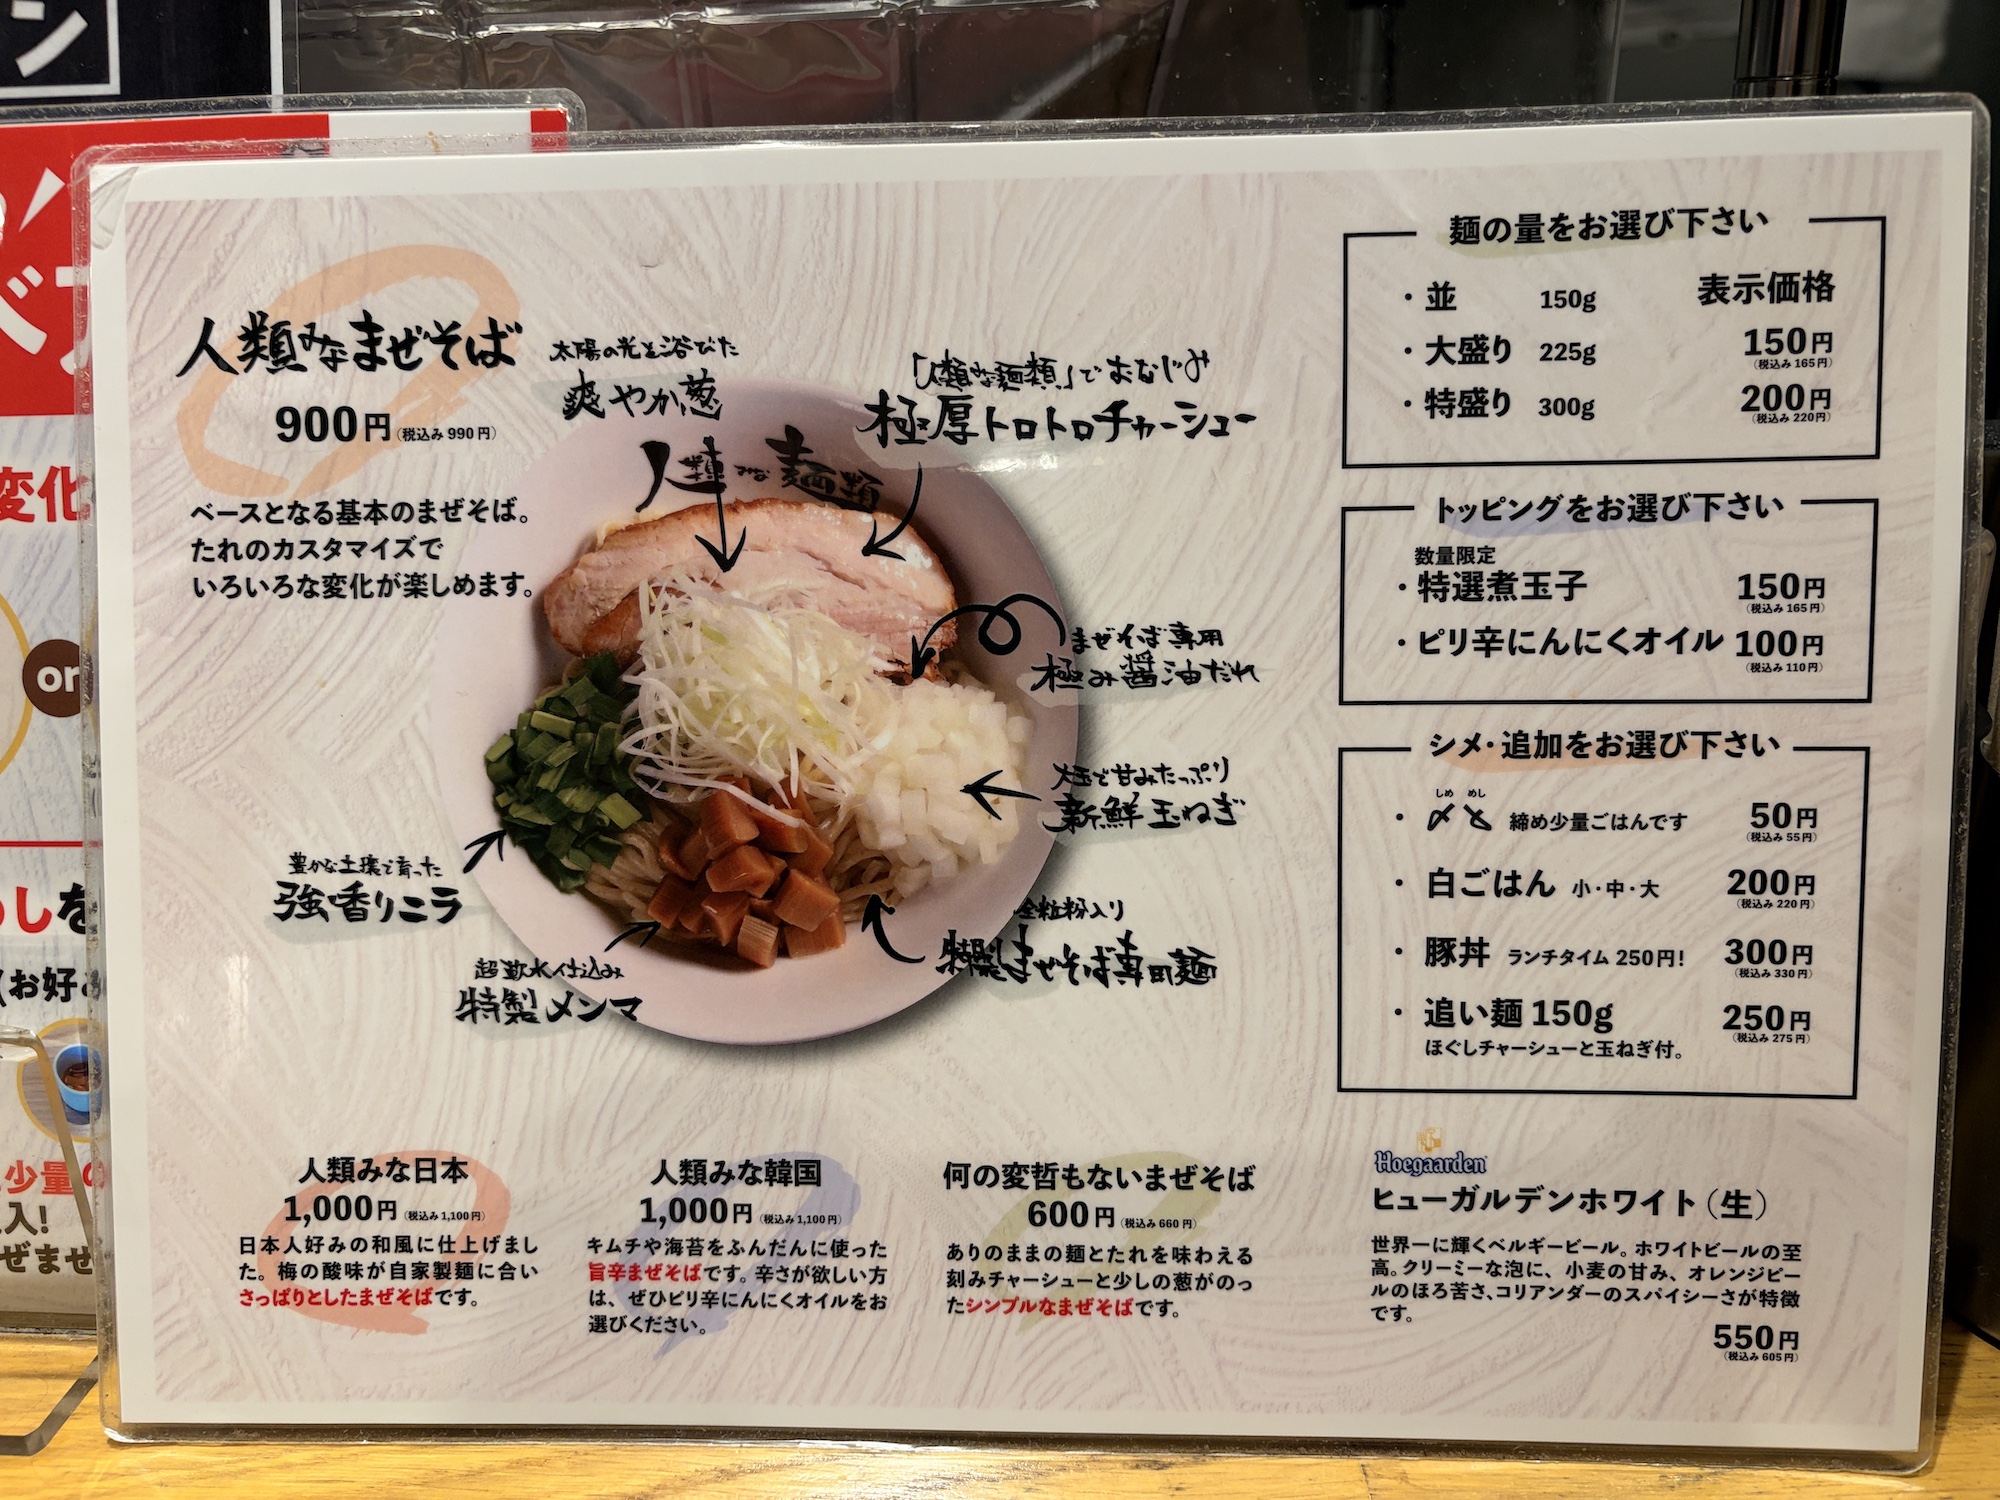 ン
変化
or
しを
(お好み
少量の
入!
ぜませ
人類みなまぜそば
900円(税込み990円)
ベースとなる基本のまぜそば。
たれのカスタマイズで
いろいろな変化が楽しめます。
太陽の光を浴びた
爽やか葱
「人類みな麺類」でおなじみ
極厚トロトロチャーシュー
人類みな麺類
まぜそば専用
極み醤油だれ
大玉で甘みたっぷり
新鮮玉ねぎ
豊かな土壌で育った
強香りニラ
超軟水仕込み
特製メンマ
全粒粉入り
特製まぜそば専用麺
麺の量をお選び下さい
・並 150g 表示価格
・大盛り 225g 150円
(税込み165円)
・特盛り 300g 200円
(税込み220円)
トッピングをお選び下さい
数量限定
・特選煮玉子 150円
(税込み165円)
・ピリ辛にんにくオイル 100円
(税込み110円)
シメ・追加をお選び下さい
しめ めし
・〆と 締め少量ごはんです 50円
(税込み55円)
・白ごはん 小・中・大 200円
(税込み220円)
・豚丼 ランチタイム250円! 300円
(税込み330円)
・追い麺150g 250円
(税込み275円)
ほぐしチャーシューと玉ねぎ付。
人類みな日本
1,000円(税込み1,100円)
日本人好みの和風に仕上げまし
た。梅の酸味が自家製麺に合い
さっぱりとしたまぜそばです。
人類みな韓国
1,000円(税込み1,100円)
キムチや海苔をふんだんに使った
旨辛まぜそばです。辛さが欲しい方
は、ぜひピリ辛にんにくオイルをお
選びください。
何の変哲もないまぜそば
600円(税込み660円)
ありのままの麺とたれを味わえる
刻みチャーシューと少しの葱がのっ
たシンプルなまぜそばです。
Hoegaarden
ヒューガルデンホワイト(生)
世界一に輝くベルギービール。ホワイトビールの至
高。クリーミーな泡に、小麦の甘み、オレンジピー
ルのほろ苦さ、コリアンダーのスパイシーさが特徴
です。
550円
(税込み605円)